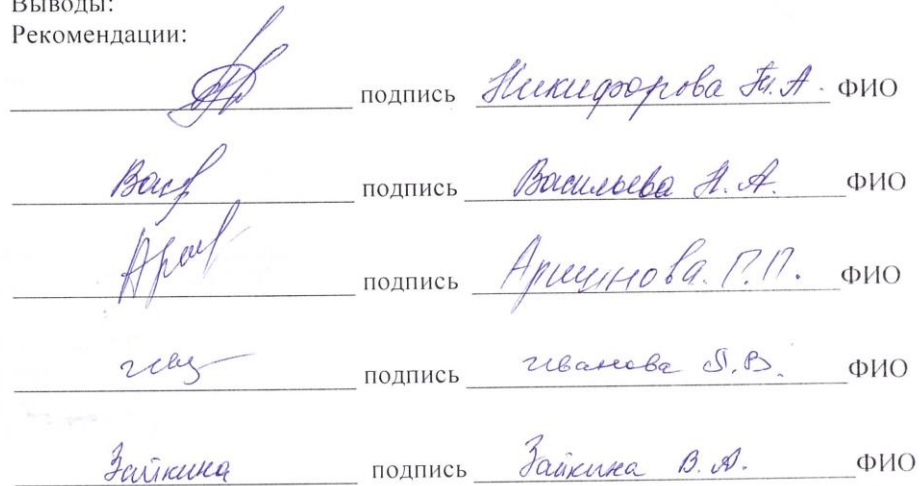 Выводы:
Рекомендации:
подпись Никифорова Т.А. ФИО
Вас подпись Васильева Н.А. ФИО
подпись Аришнова Г.П. ФИО
подпись Иванова Л.В. ФИО
Зайкина подпись Зайкина В.А. ФИО